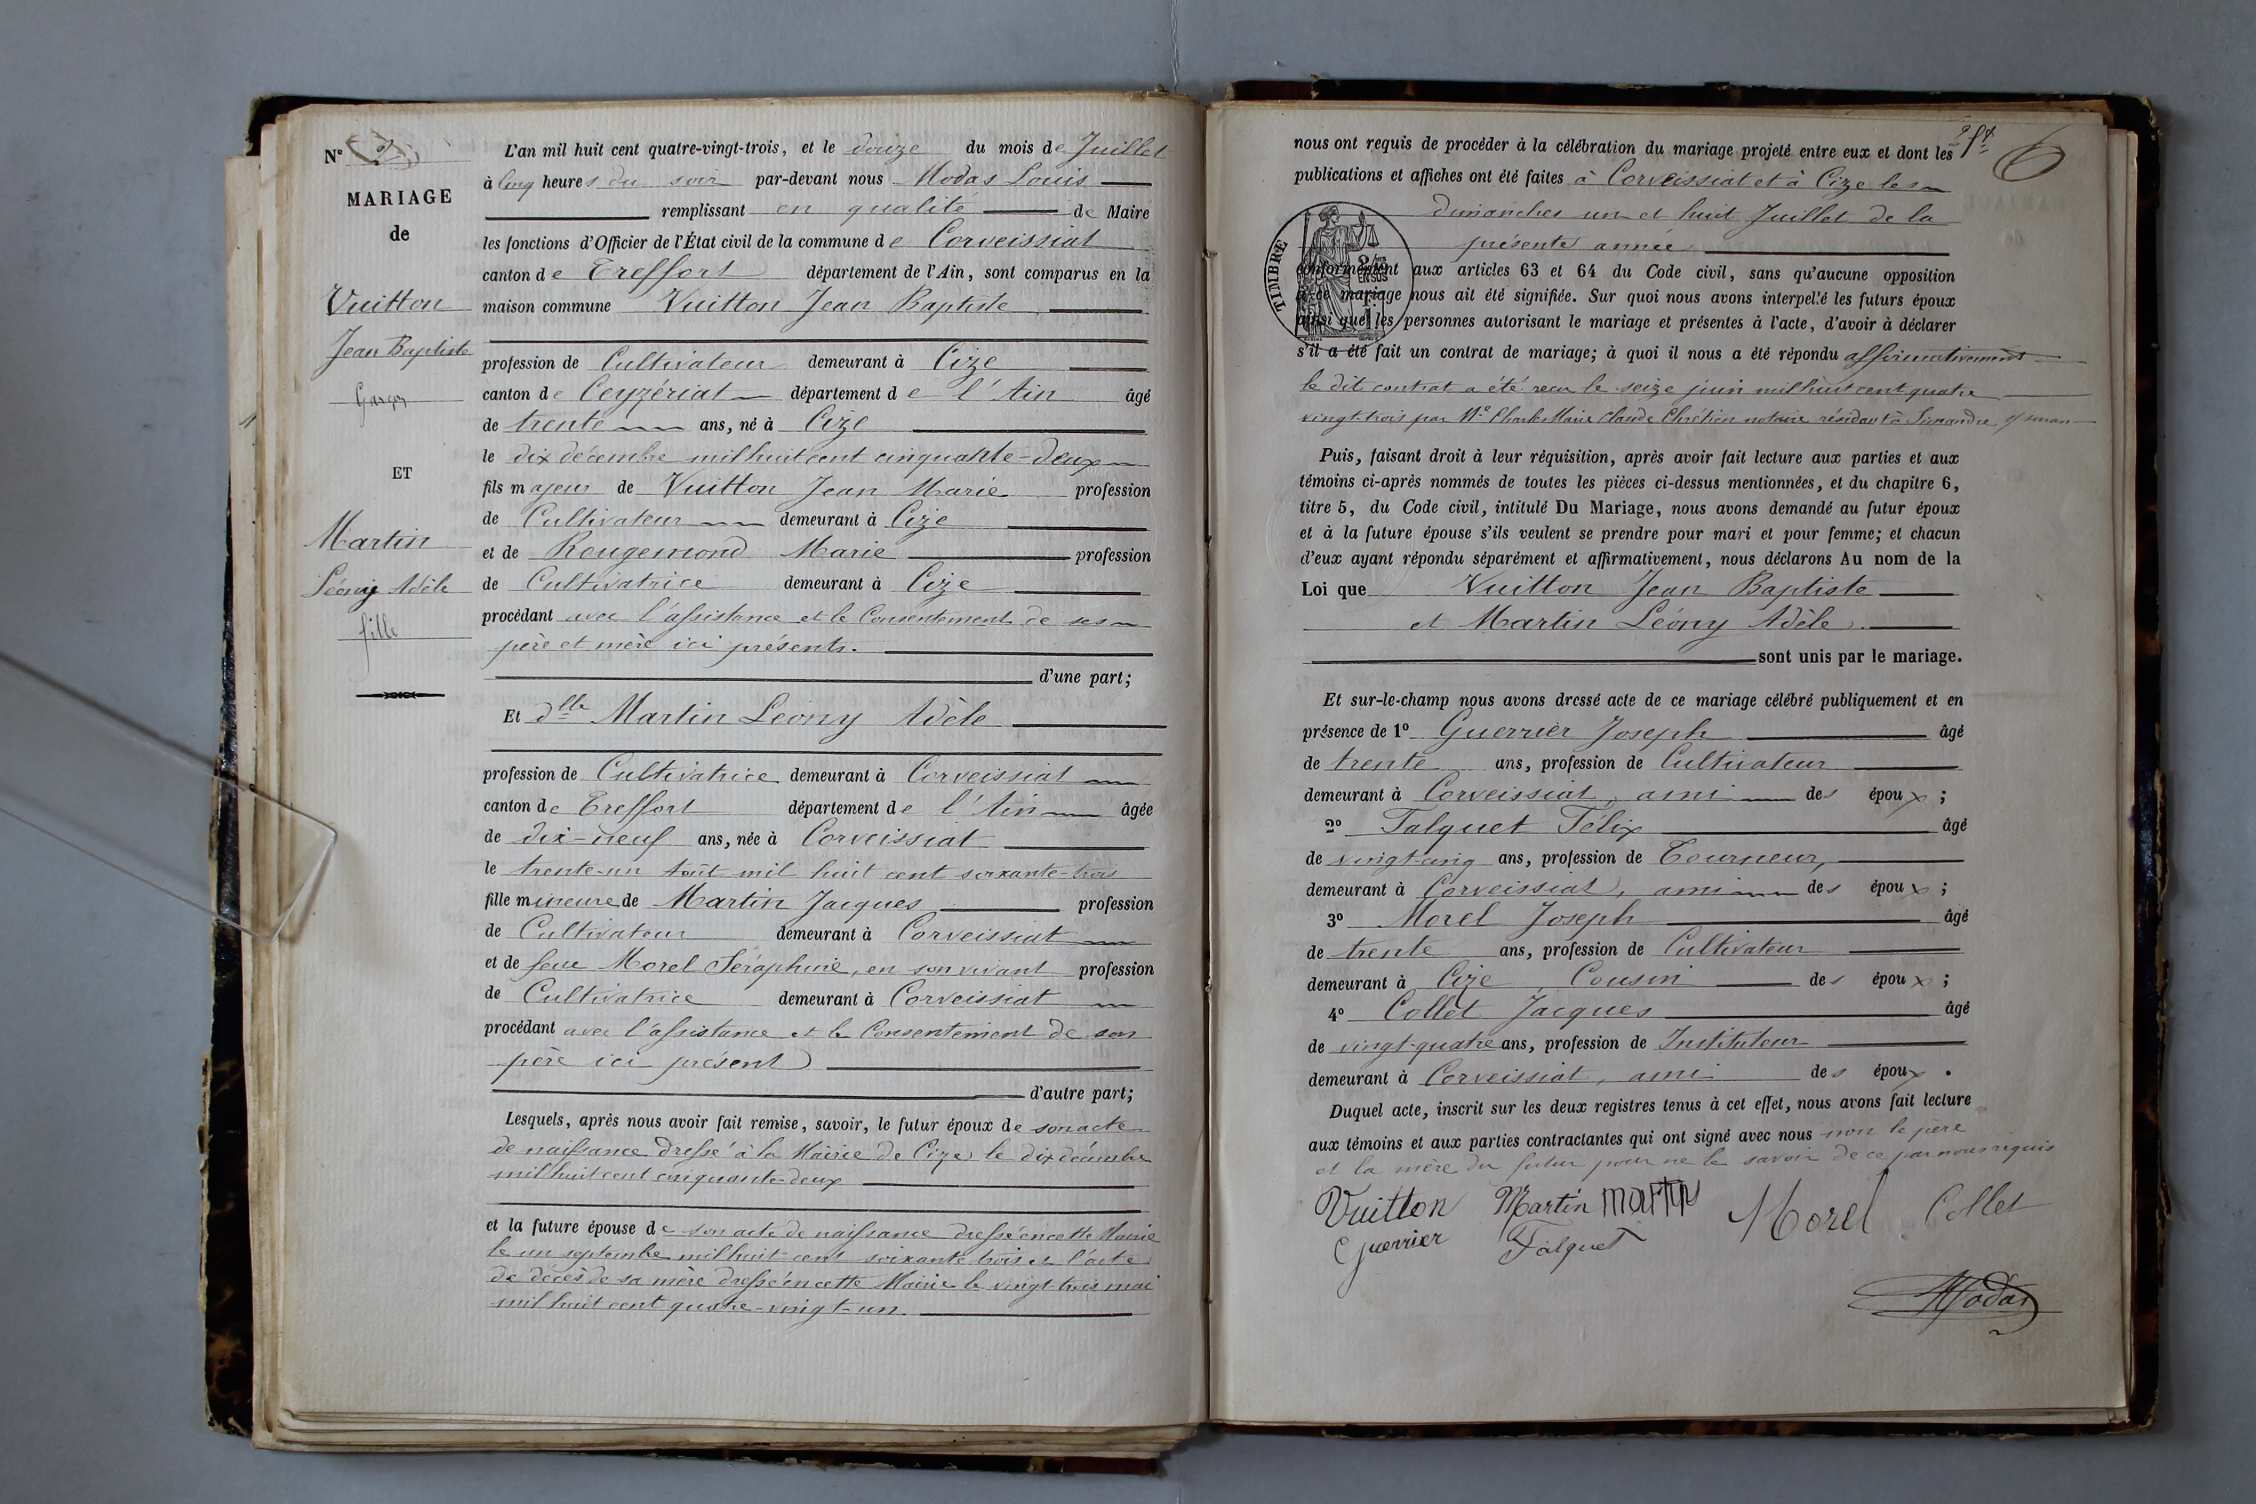 N°
MARIAGE
de
Vuitton
Jean Baptiste
Garçon
ET
Martin
Léony Adèle
fille
L'an mil huit cent quatre-vingt-trois, et le douze du mois de Juillet
à cinq heures du soir par-devant nous Modas Louis
remplissant en qualité de Maire
les fonctions d'Officier de l'État civil de la commune de Corveissiat
canton de Treffort département de l'Ain, sont comparus en la
maison commune Vuitton Jean Baptiste
profession de Cultivateur demeurant à Cize
canton de Ceyzériat département de l'Ain âgé
de trente ans, né à Cize
le dix décembre mil huit cent cinquante-deux
fils majeur de Vuitton Jean Marie profession
de Cultivateur demeurant à Cize
et de Rougemond Marie profession
de Cultivatrice demeurant à Cize
procédant avec l'assistance et le Consentement de ses
père et mère ici présents.
d'une part;
Et dlle Martin Léony Adèle
profession de Cultivatrice demeurant à Corveissiat
canton de Treffort département de l'Ain âgée
de dix-neuf ans, née à Corveissiat
le trente-un Août mil huit cent soixante-trois
fille mineure de Martin Jacques profession
de Cultivateur demeurant à Corveissiat
et de feue Morel Séraphine, en son vivant profession
de Cultivatrice demeurant à Corveissiat
procédant avec l'assistance et le Consentement de son
père ici présent
d'autre part;
Lesquels, après nous avoir fait remise, savoir, le futur époux de son acte
de naissance dressé à la Mairie de Cize le dix décembre
mil huit cent cinquante-deux
et la future épouse de son acte de naissance dressé en cette Mairie
le un septembre mil huit cent soixante trois et l'acte
de décès de sa mère dressé en cette Mairie le vingt-trois mai
mil huit cent quatre-vingt-un.
6
nous ont requis de procéder à la célébration du mariage projeté entre eux et dont les
publications et affiches ont été faites à Corveissiat et à Cize les
dimanches un et huit Juillet de la
présente année
TIMBRE
2/10 EN SUS
conformément aux articles 63 et 64 du Code civil, sans qu'aucune opposition
à ce mariage nous ait été signifiée. Sur quoi nous avons interpellé les futurs époux
ainsi que les personnes autorisant le mariage et présentes à l'acte, d'avoir à déclarer
s'il a été fait un contrat de mariage; à quoi il nous a été répondu affirmativement
le dit contrat a été reçu le seize juin mil huit cent quatre
vingt-trois par Me Charles Marie Claude Chrétien notaire résidant à Simandre s/ suran
Puis, faisant droit à leur réquisition, après avoir fait lecture aux parties et aux
témoins ci-après nommés de toutes les pièces ci-dessus mentionnées, et du chapitre 6,
titre 5, du Code civil, intitulé Du Mariage, nous avons demandé au futur époux
et à la future épouse s'ils veulent se prendre pour mari et pour femme; et chacun
d'eux ayant répondu séparément et affirmativement, nous déclarons Au nom de la
Loi que Vuitton Jean Baptiste
et Martin Léony Adèle
sont unis par le mariage.
Et sur-le-champ nous avons dressé acte de ce mariage célébré publiquement et en
présence de 1° Guerrier Joseph âgé
de trente ans, profession de Cultivateur
demeurant à Corveissiat, ami des époux ;
2° Falquet Félix âgé
de vingt-cinq ans, profession de Tourneur,
demeurant à Corveissiat, ami des époux ;
3° Morel Joseph âgé
de trente ans, profession de Cultivateur
demeurant à Cize, Cousin des époux ;
4° Collet Jacques âgé
de vingt-quatre ans, profession de Instituteur
demeurant à Corveissiat, ami des époux .
Duquel acte, inscrit sur les deux registres tenus à cet effet, nous avons fait lecture
aux témoins et aux parties contractantes qui ont signé avec nous non le père
et la mère du futur pour ne le savoir de ce par nous requis
Vuitton Martin Martin Morel Collet
Guerrier Falquet
Modas